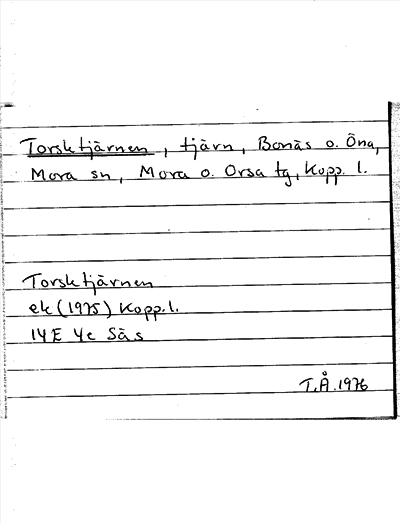 Torsktjärnen, tjärn, Bonäs o. Öna,
Mora sn, Mora o. Orsa tg, Kopp. l.
Torsktjärnen
ek (1975) Kopp. l.
14E 4c Säs
T.Å. 1976